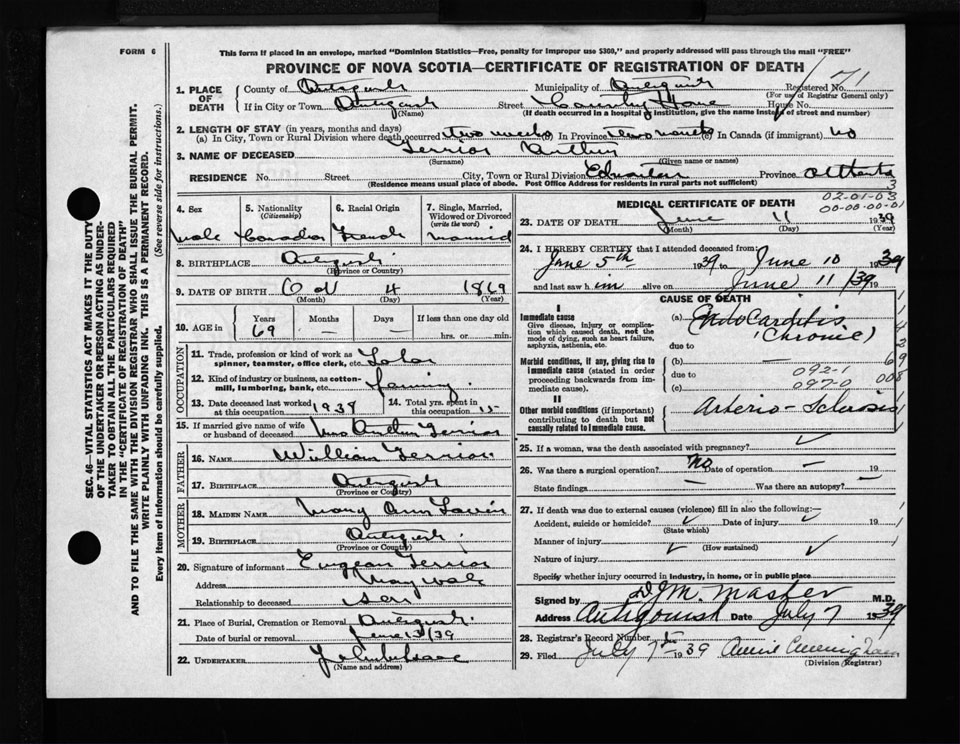 FORM 6
This form if placed in an envelope, marked "Dominion Statistics—Free, penalty for improper use $300," and properly addressed will pass through the mail "FREE"
PROVINCE OF NOVA SCOTIA—CERTIFICATE OF REGISTRATION OF DEATH
71
1. PLACE OF DEATH
County of Antigonish Municipality of Antigonish Registered No.
(For use of Registrar General only)
If in City or Town Antigonish Street County Home House No.
(Name) (If death occurred in a hospital or institution, give the name instead of street and number)
2. LENGTH OF STAY (in years, months and days)
(a) In City, Town or Rural Division where death occurred two weeks (b) In Province two weeks (c) In Canada (if immigrant) no
3. NAME OF DECEASED Terrior Arthur
(Surname) (Given name or names)
RESIDENCE No. Street City, Town or Rural Division Edmonton Province Alberta
(Residence means usual place of abode. Post Office Address for residents in rural parts not sufficient)
3
4. Sex 5. Nationality (Citizenship) 6. Racial Origin 7. Single, Married, Widowed or Divorced (write the word)
Male Canadian French married
8. BIRTHPLACE Antigonish
(Province or Country)
9. DATE OF BIRTH Oct 4 1869
(Month) (Day) (Year)
10. AGE in Years Months Days If less than one day old
69 — — hrs. or min.
OCCUPATION
11. Trade, profession or kind of work as spinner, teamster, office clerk, etc. Labor
12. Kind of industry or business, as cotton-mill, lumbering, bank, etc. Farming
13. Date deceased last worked at this occupation 1938
14. Total yrs. spent in this occupation 15
15. If married give name of wife or husband of deceased Mrs Arthur Terrior
FATHER
16. NAME William Terrior
17. BIRTHPLACE Antigonish
(Province or Country)
MOTHER
18. MAIDEN NAME Mary Ann
19. BIRTHPLACE Antigonish
(Province or Country)
20. Signature of informant Eugean Terrior
Address
Relationship to deceased son
21. Place of Burial, Cremation or Removal Antigonish
Date of burial or removal June 13/39
22. UNDERTAKER
(Name and address)
MEDICAL CERTIFICATE OF DEATH
02-01-03
00-00-00-01
23. DATE OF DEATH June 11 1939
(Month) (Day) (Year)
24. I HEREBY CERTIFY that I attended deceased from:
June 5th 1939 to June 10 1939
and last saw him alive on June 11/39 19
CAUSE OF DEATH
I
Immediate cause
Give disease, injury or complication which caused death, not the mode of dying, such as heart failure, asphyxia, asthenia, etc.
(a) Endocarditis (Chronic)
due to
Morbid conditions, if any, giving rise to immediate cause (stated in order proceeding backwards from immediate cause).
(b) —
due to 092-1
(c) 097-0
69
008
II
Other morbid conditions (if important) contributing to death but not causally related to immediate cause.
Arterio-Sclerosis
25. If a woman, was the death associated with pregnancy?
26. Was there a surgical operation? No Date of operation — 19
State findings — Was there an autopsy? —
27. If death was due to external causes (violence) fill in also the following:—
Accident, suicide or homicide? Date of injury 19
(State which)
Manner of injury
(How sustained)
Nature of injury
Specify whether injury occurred in industry, in home, or in public place
Signed by M. Master M.D.
Address Antigonish Date July 7 1939
28. Registrar's Record Number
29. Filed July 7 1939 Annie Cunningham
(Division Registrar)
SEC. 46—VITAL STATISTICS ACT MAKES IT THE DUTY
OF THE UNDERTAKER OR PERSON ACTING AS UNDER-
TAKER TO OBTAIN ALL THE PARTICULARS REQUIRED
IN THE "CERTIFICATE OF REGISTRATION OF DEATH"
AND TO FILE THE SAME WITH THE DIVISION REGISTRAR WHO SHALL ISSUE THE BURIAL PERMIT.
WRITE PLAINLY WITH UNFADING INK. THIS IS A PERMANENT RECORD.
Every item of information should be carefully supplied. (See reverse side for instructions.)